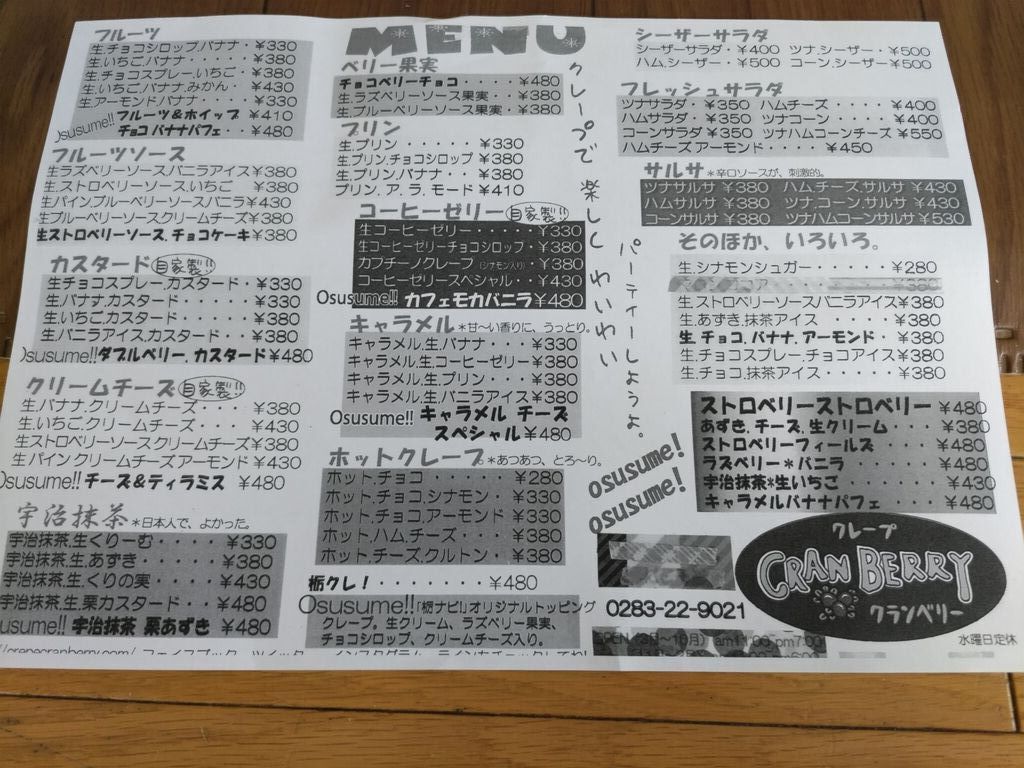 フルーツ
生.チョコシロップ.バナナ・¥330
生.いちご.バナナ・・・・¥380
生.チョコスプレー.いちご・¥380
生.いちご.バナナ.みかん・¥430
生.アーモンド.バナナ・・¥330
Osusume!! フルーツ&ホイップ ¥410
チョコ バナナパフェ・・¥480
フルーツソース
生ラズベリーソースバニラアイス¥380
生.ストロベリーソース.いちご ¥380
生パイン.ブルーベリーソースバニラ¥430
生ブルーベリーソースクリームチーズ¥380
生ストロベリーソース.チョコケーキ¥380
カスタード 自家製!!
生チョコスプレー.カスタード・¥330
生.バナナ.カスタード・・・¥330
生.いちご.カスタード・・・¥380
生.バニラアイス.カスタード・¥380
Osusume!!ダブルベリー.カスタード¥480
クリームチーズ 自家製!!
生.バナナ.クリームチーズ・・・¥380
生.いちご.クリームチーズ・・・¥430
生ストロベリーソースクリームチーズ¥380
生パインクリームチーズアーモンド¥430
Osusume!! チーズ&ティラミス ¥480
宇治抹茶 *日本人で、よかった。
宇治抹茶.生くりーむ・・・¥330
宇治抹茶.生.あずき・・・¥380
宇治抹茶.生.くりの実・・・¥430
宇治抹茶.生.栗カスタード・・¥480
usume!! 宇治抹茶 栗あずき ¥480
MENU
ベリー果実
チョコベリーチョコ・・・・・¥480
生.ラズベリーソース果実・・¥380
生.ブルーベリーソース果実・¥380
プリン
生.プリン・・・・・・¥330
生.プリン.チョコシロップ ¥380
生.プリン.バナナ・・¥380
プリン.ア.ラ.モード・¥410
コーヒーゼリー 自家製!!
生コーヒーゼリー・・・・・¥330
生コーヒーゼリーチョコシロップ・¥380
カプチーノクレープ(シナモン入り)・¥380
コーヒーゼリースペシャル・・¥430
Osusume!! カフェモカバニラ ¥480
キャラメル *甘〜い香りに、うっとり。
キャラメル.生.バナナ・・・¥330
キャラメル.生.コーヒーゼリー¥380
キャラメル.生.プリン・・・¥380
キャラメル.生.バニラアイス¥380
Osusume!! キャラメル チーズ
スペシャル ¥480
ホットクレープ。*あつあつ、とろ〜り。
ホット.チョコ・・・・・・¥280
ホット.チョコ.シナモン・¥330
ホット.チョコ.アーモンド ¥380
ホット.ハム.チーズ・・・¥380
ホット.チーズ.クルトン・¥380
栃クレ!・・・・・・・¥480
Osusume!!「栃ナビ!」オリジナルトッピング
クレープ。生クリーム、ラズベリー果実、
チョコシロップ、クリームチーズ入り。
クレープで 楽しく わいわい
パーティーしようよ。
シーザーサラダ
シーザーサラダ・¥400 ツナ.シーザー・¥500
ハム.シーザー・¥500 コーン.シーザー・¥500
フレッシュサラダ
ツナサラダ・¥350 ハムチーズ・・・¥400
ハムサラダ・¥350 ツナコーン・・・・¥400
コーンサラダ ¥350 ツナハムコーンチーズ¥550
ハムチーズ アーモンド・・・・¥450
サルサ *辛口ソースが、刺激的。
ツナサルサ ¥380 ハム.チーズ.サルサ ¥430
ハムサルサ・¥380 ツナ.コーン.サルサ・¥430
コーンサルサ ¥380 ツナハムコーンサルサ ¥530
そのほか、いろいろ。
生.シナモンシュガー・・・・・¥280
生.ストロベリーソースバニラアイス¥380
生.あずき.抹茶アイス・・・・¥380
生.チョコ.バナナ.アーモンド・¥380
生.チョコスプレー.チョコアイス ¥380
生.チョコ.抹茶アイス・・・・・¥380
osusume!
osusume!
ストロベリーストロベリー ¥480
あずき.チーズ.生クリーム・・¥380
ストロベリーフィールズ ¥480
ラズベリー*バニラ・・・・¥480
宇治抹茶*生いちご ¥430
キャラメルバナナパフェ・・¥480
クレープ
CRAN BERRY
クランベリー
0283-22-9021
水曜日定休